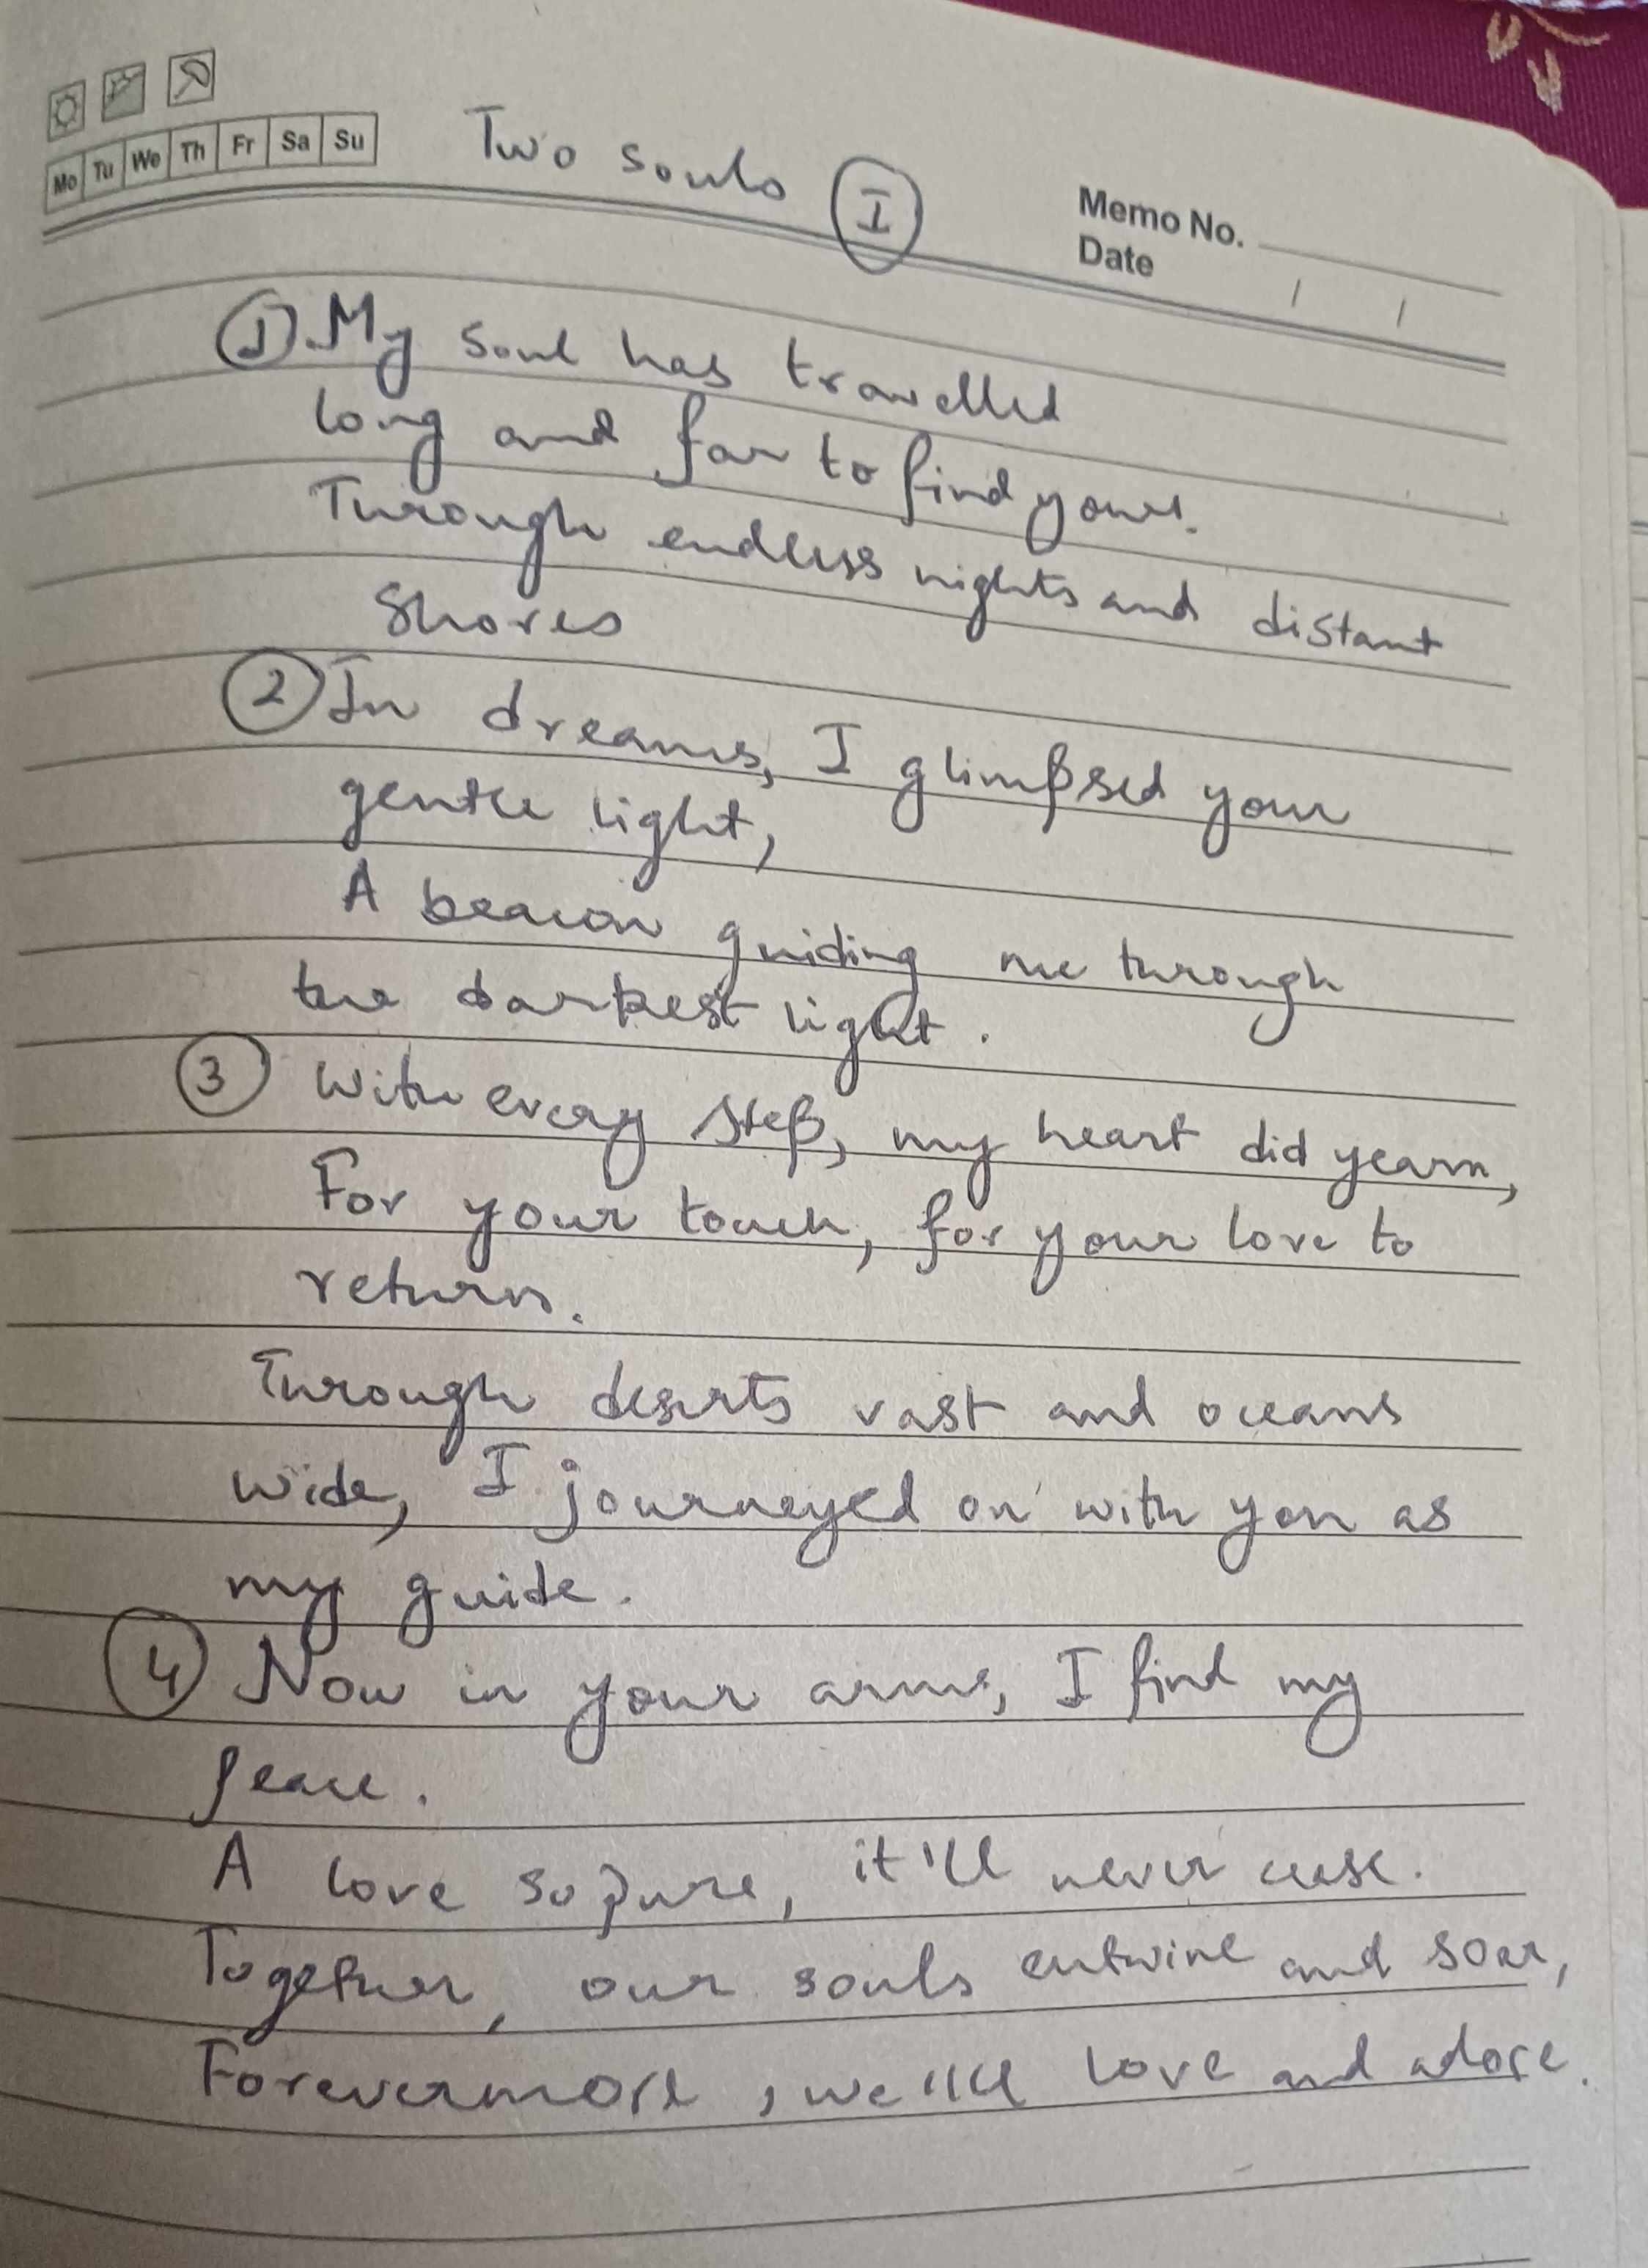 Mo Tu We Th Fr Sa Su
Two souls I
Memo No.
Date / /
1. My soul has travelled
long and far to find yours.
Through endless nights and distant
Shores
2 In dreams, I glimpsed your
gentle light,
A beacon guiding me through
the darkest light.
3 With every step, my heart did yearn,
For your touch, for your love to
return.
Through deserts vast and oceans
wide, I journeyed on with you as
my guide.
4 Now in your arms, I find my
peace.
A love so pure, it'll never cease.
Together, our souls entwine and soar,
Forevermore, we'll love and adore.